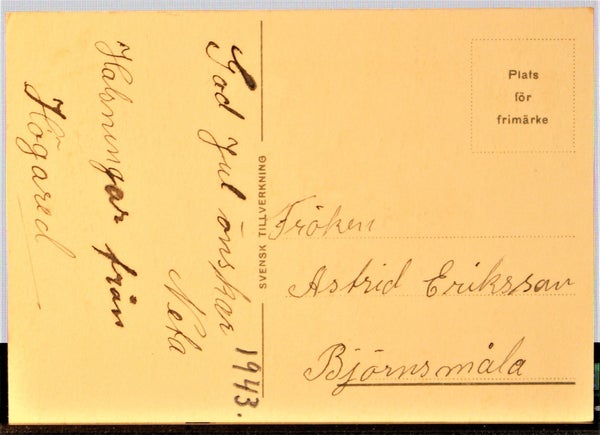 God Jul önskar
Neta
1943.
Halsningar från
Högared
SVENSK TILLVERKNING
Plats
för
frimärke
Fröken
Astrid Eriksson
Björnsmåla